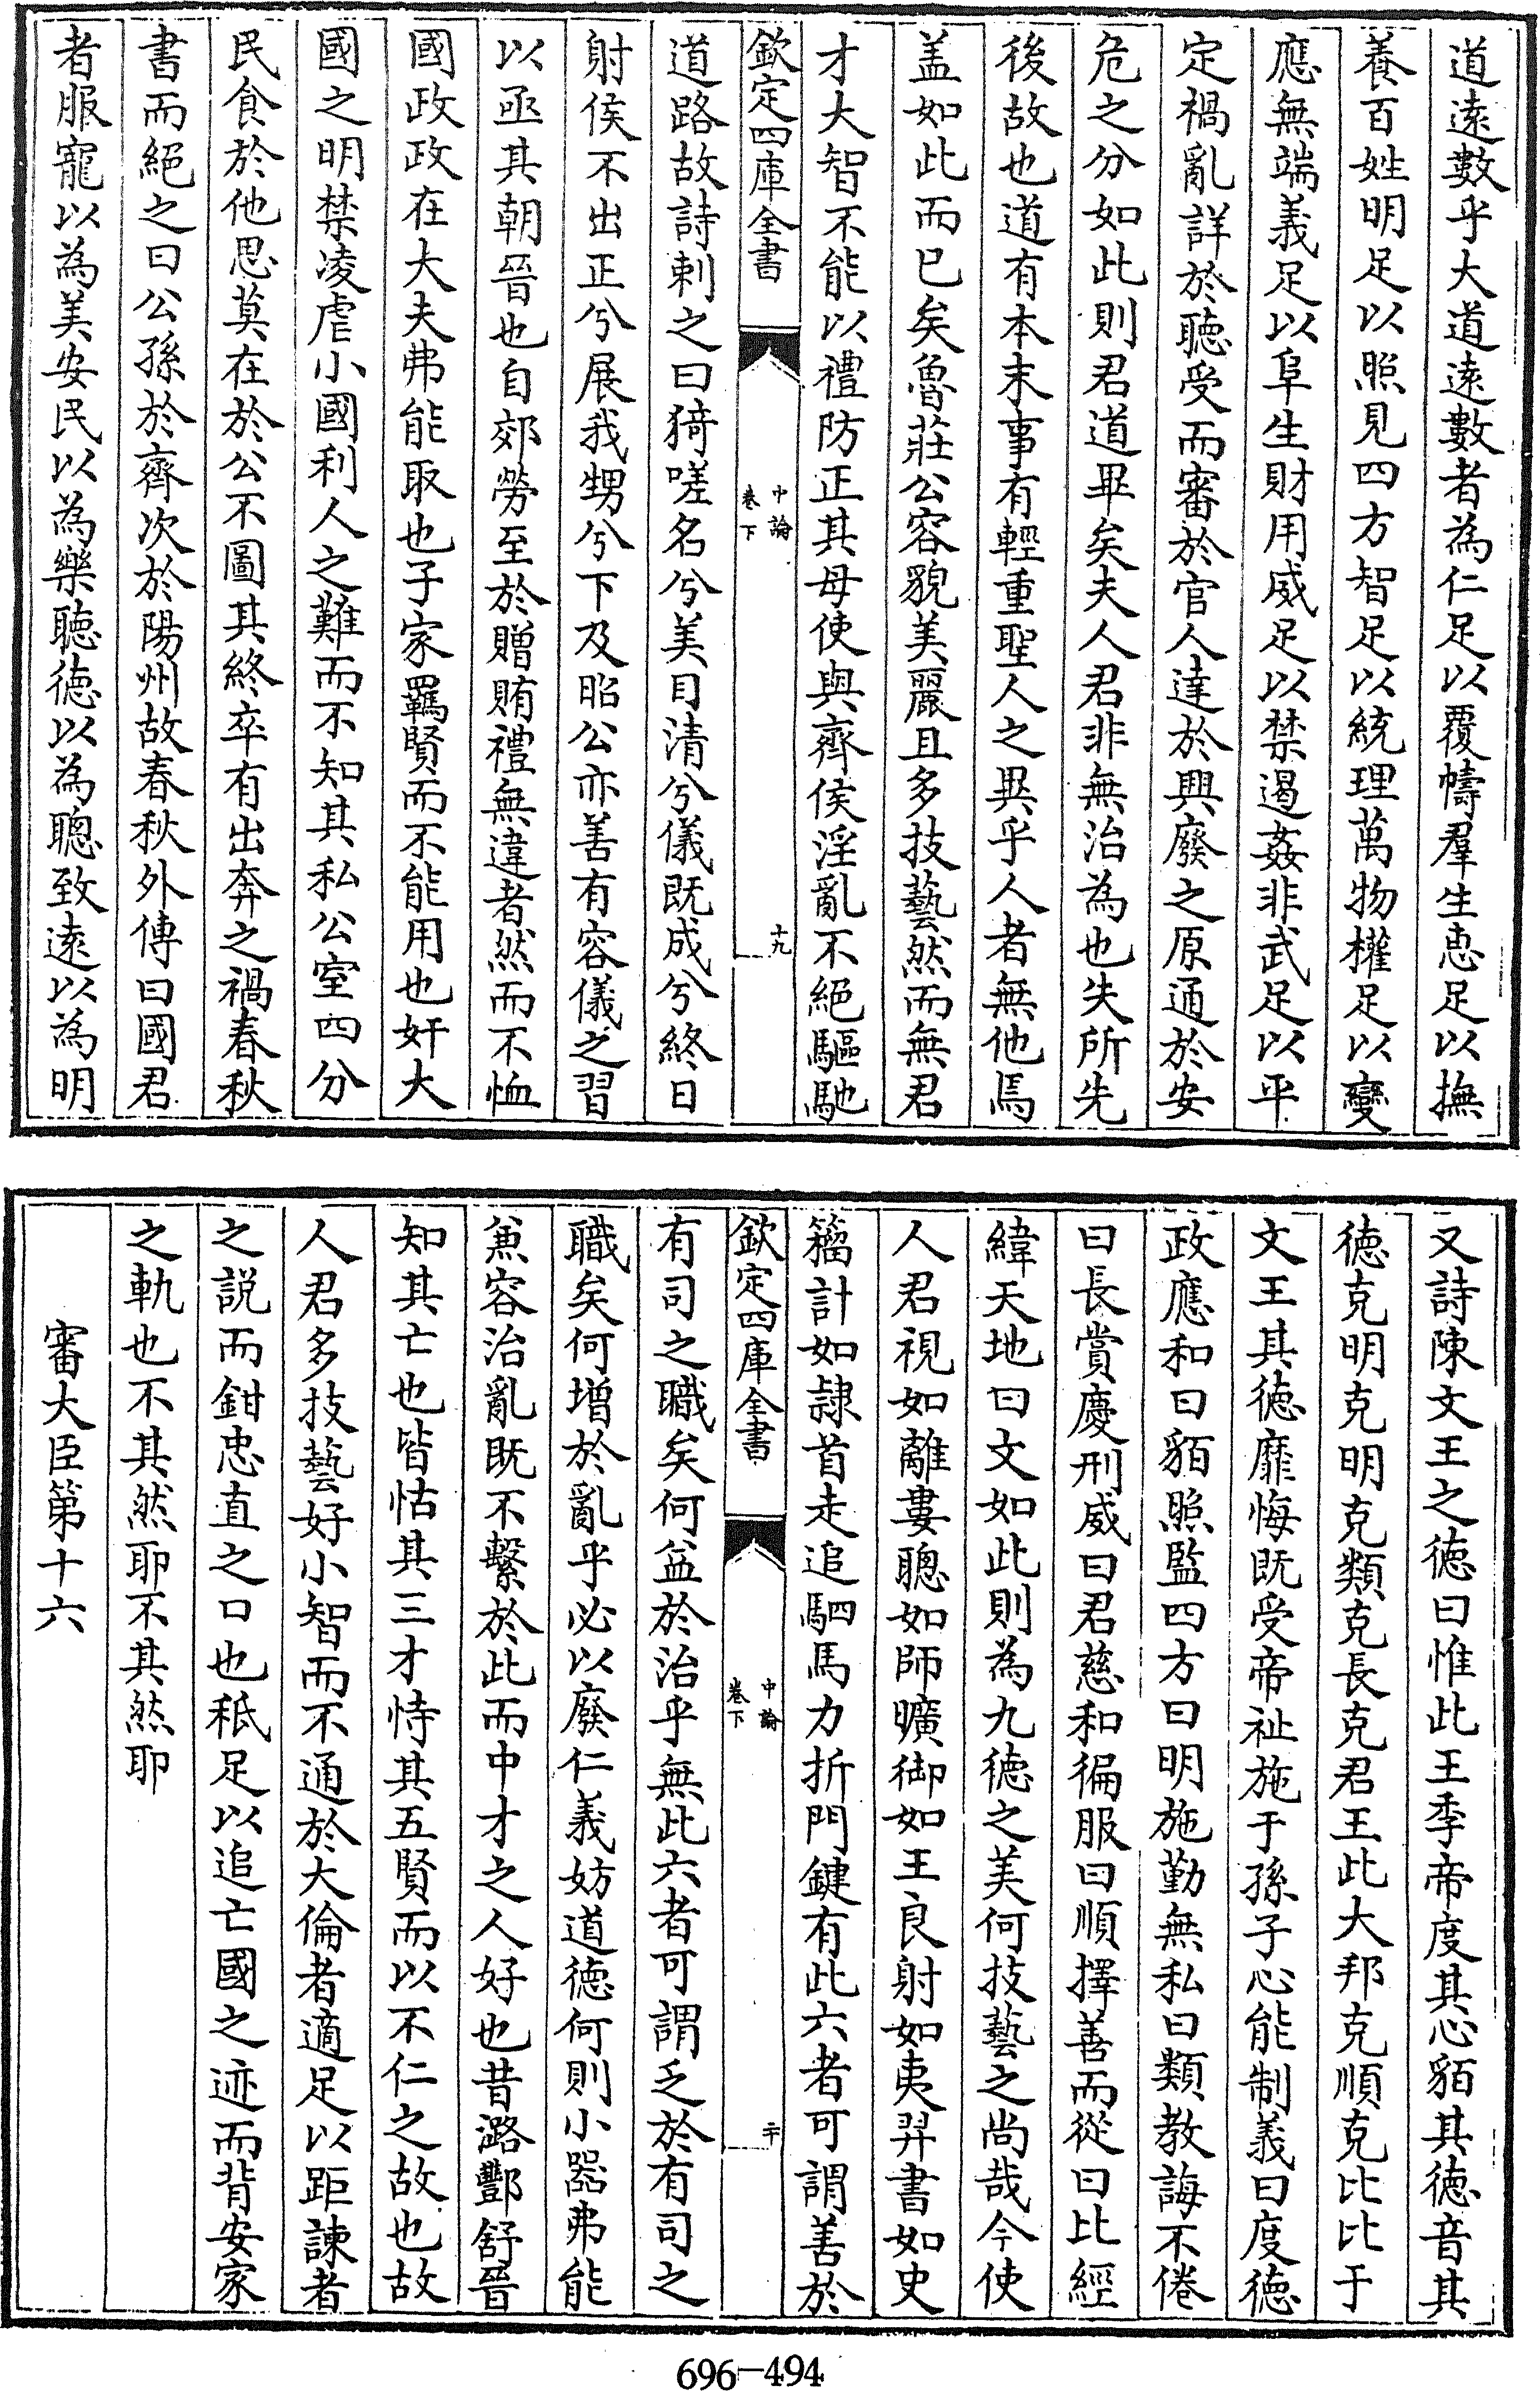 道逺數乎大道逺數者為仁足以覆幬羣生惠足以撫
養百姓明足以照見四方智足以統理萬物權足以變
應無端義足以阜生財用威足以禁遏姦非武足以平
定禍亂詳於聽受而審於官人達於興廢之原通於安
危之分如此則君道畢矣夫人君非無治為也失所先
後故也道有本末事有輕重聖人之異乎人者無他焉
盖如此而已矣魯莊公容貌美麗且多技藝然而無君
才大智不能以禮防正其母使與齊侯淫亂不絕驅馳
欽定四庫全書
中論
卷下
十九
道路故詩刺之曰猗嗟名兮美目清兮儀既成兮終日
射侯不出正兮展我甥兮下及昭公亦善有容儀之習
以亟其朝晉也自郊勞至於贈賄禮無違者然而不恤
國政政在大夫弗能取也子家羈賢而不能用也奸大
國之明禁凌虐小國利人之難而不知其私公室四分
民食於他思莫在於公不圖其終卒有出奔之禍春秋
書而絕之曰公孫於齊次於陽州故春秋外傳曰國君
者服寵以為美安民以為樂聴徳以為聰致逺以為明
又詩陳文王之徳曰惟此王季帝度其心貊其徳音其
徳克明克明克類克長克君王此大邦克順克比比于
文王其徳靡悔既受帝祉施于孫子心能制義曰度徳
政應和曰貊照監四方曰明施勤無私曰類教誨不倦
曰長賞慶刑威曰君慈和徧服曰順擇善而從曰比經
緯天地曰文如此則為九徳之美何技藝之尚哉今使
人君視如離婁聰如師曠御如王良射如夷羿書如史
籀計如隷首走追駟馬力折門鍵有此六者可謂善於
欽定四庫全書
中論
卷下
二十
有司之職矣何益於治乎無此六者可謂乏於有司之
職矣何増於亂乎必以廢仁義妨道徳何則小器弗能
兼容治亂既不繫於此而中才之人好也昔潞酆舒晉
知其亡也皆怙其三才恃其五賢而以不仁之故也故
人君多技藝好小智而不通於大倫者適足以距諫者
之說而鉗忠直之口也秪足以追亡國之迹而背安家
之軌也不其然耶不其然耶
審大臣第十六
696-494